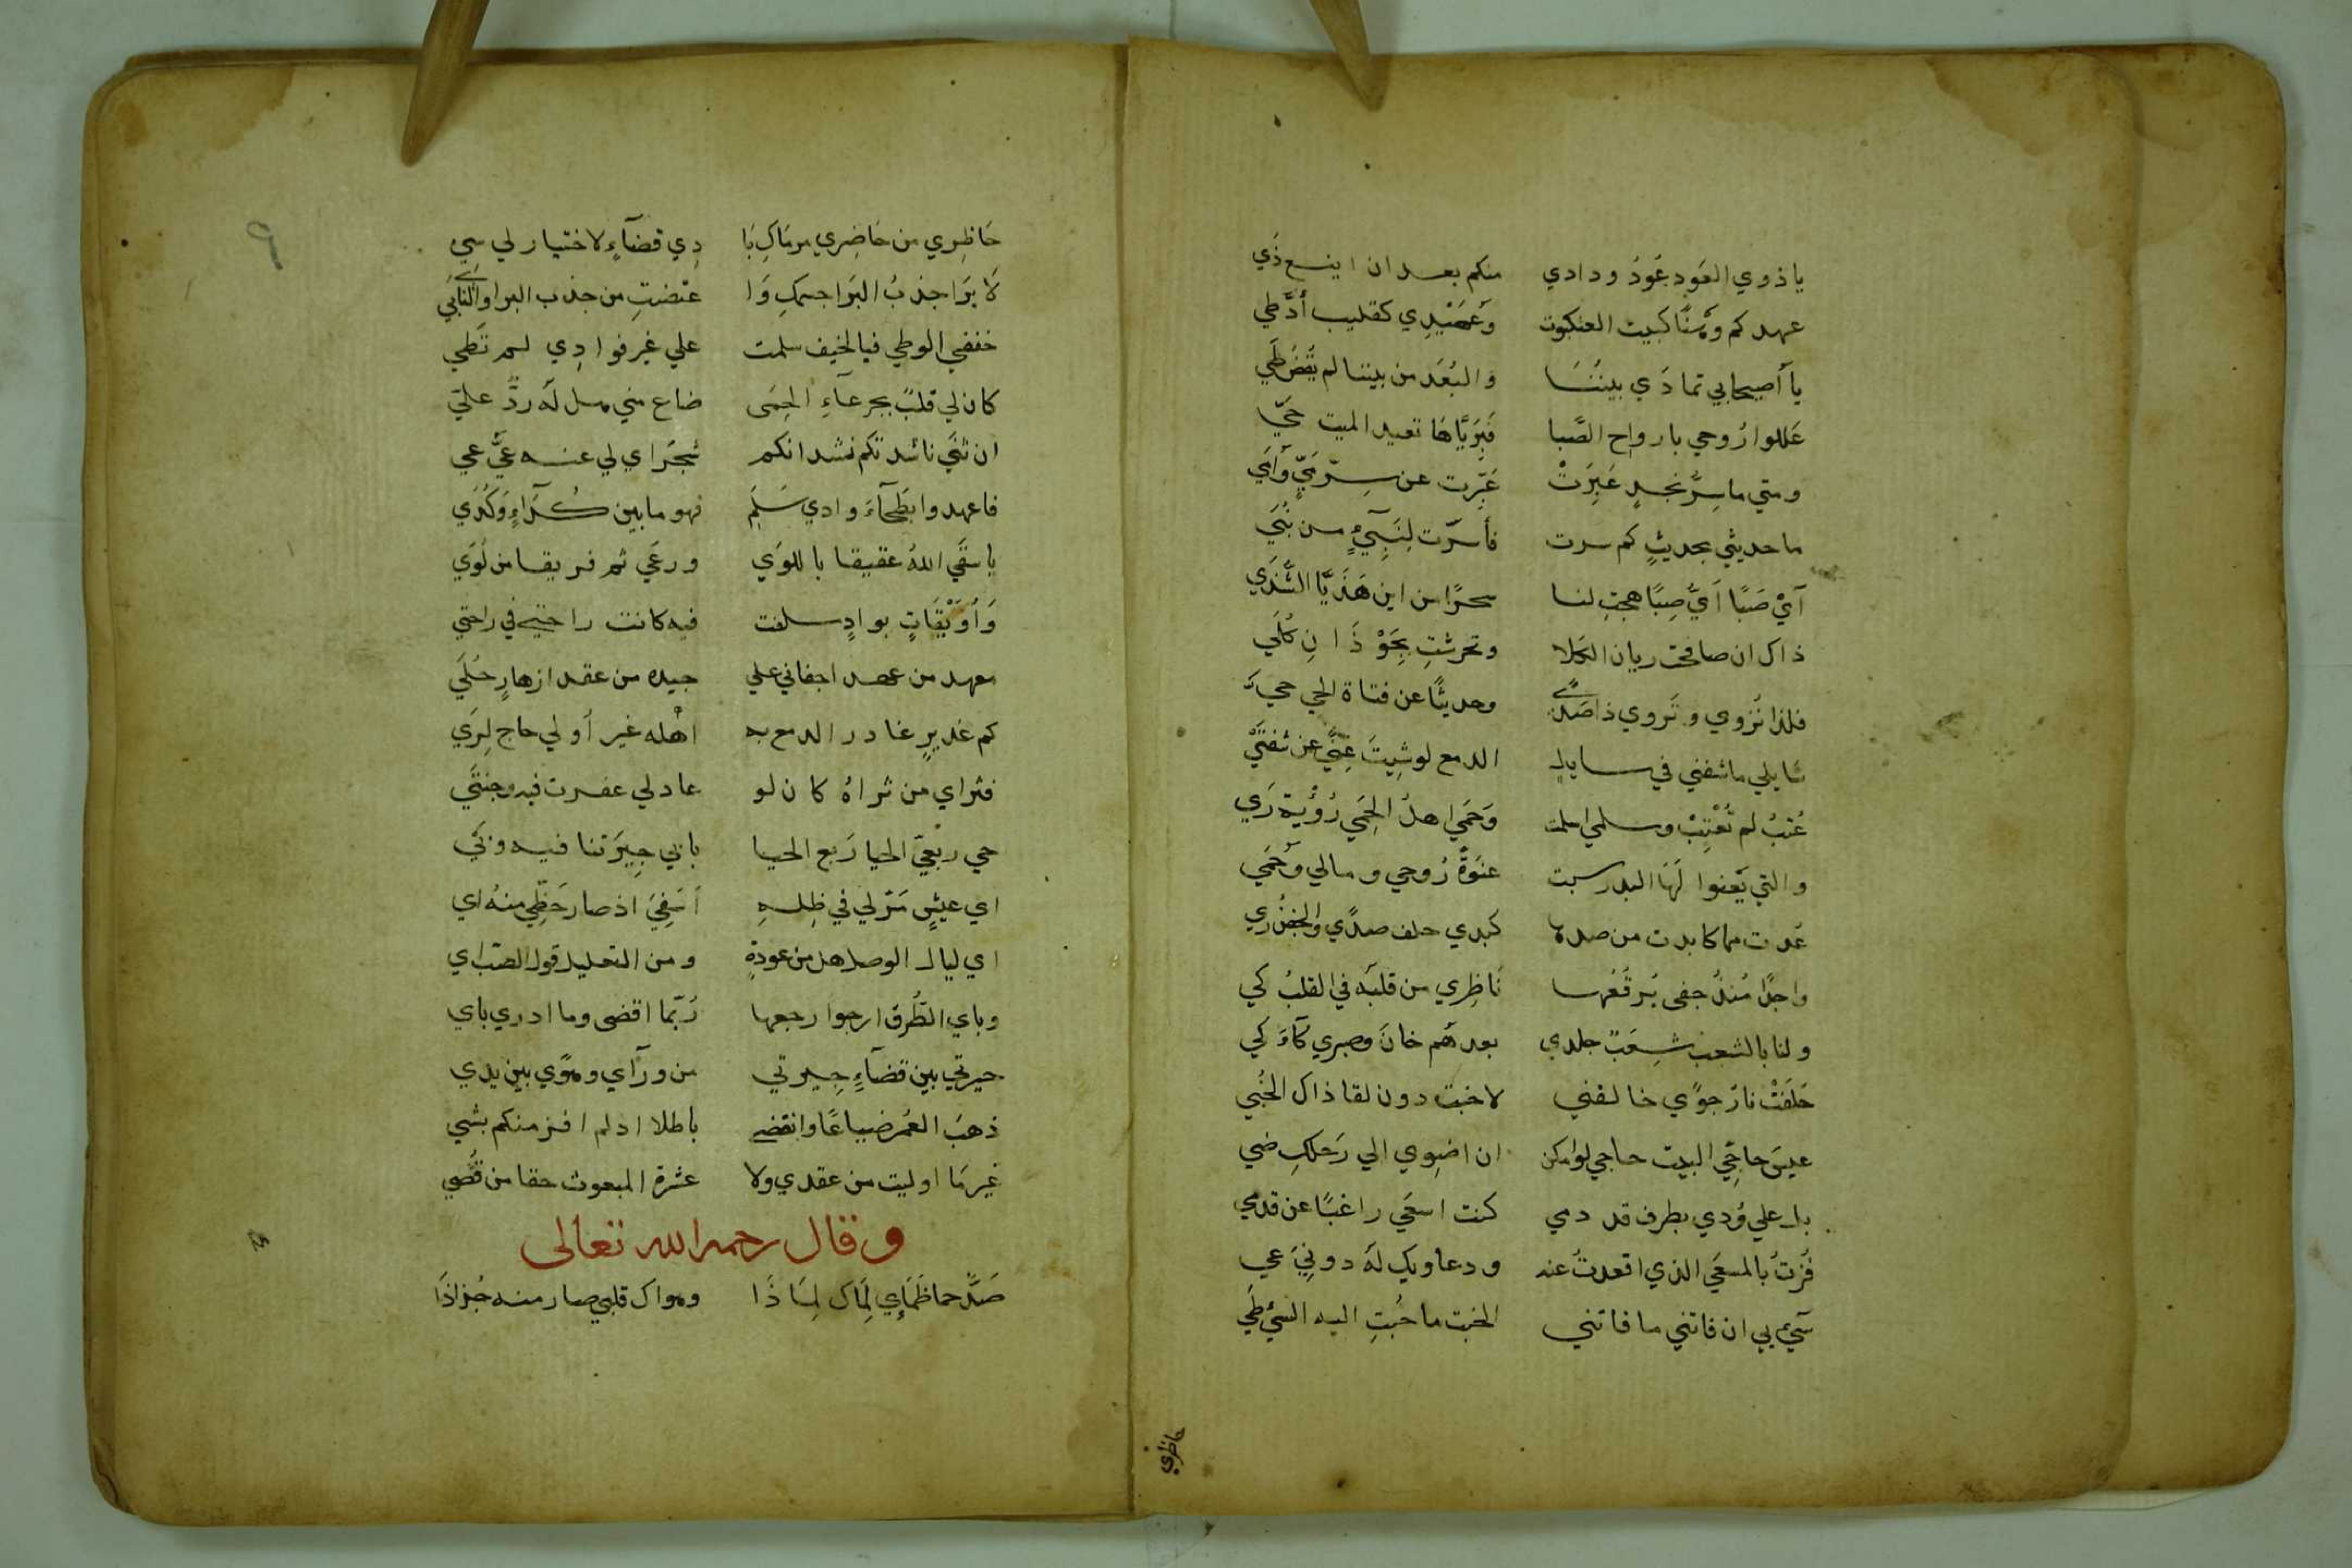 يا ذوي العَودِ عُودُ ودادي منكم بعد ان اينع ذَي
عهدكم وَهْنًا كبيت العنكبوت وَعَهْيدِي كقليب أدَّ طي
يا أصيحابي تمادَي بينُنَا والبُعَد من بيننا لم يُقضَ طَي
عَللوا رُوحي بارواح الصَّبا فَبِرَيَّاهَا تعيد الميت حَيّ
ومتي ما سِرَّ نجدٍ عَبِرَتْ عَبِّرت عن سِرّ مَيٍّ وَأمَي
ما حديثي بحديثٍ كم سرت فأسرّت لِنَبِيٍّ من نُبَي
آيْ صَبًا اَيَّ صِبًا هجتِ لنا سحرًا من اين هَذَيَّا الشَّذَي
ذاك ان صافحت ريان الكلا وتحرشتِ بِحَوْذَانِ كُلَي
فلذا تُروي وتَروي ذا صَدًي وحديثًا عن فتاة الحي حي
سايلي ما شفني في سايل الدمع لو شِيتَ غِنًي عن شفتَيَّ
عُتبُ لم تُعْتِبْ وسلمي اسلمت وَحَمَي اهلُ الحِمَي رُؤْية رَي
والتي يَعنوا لَهَا البدر سبت عنوَةً رُوحي ومالي وَحُمَي
عُدت مما كابدت من صدها كبدي حلف صدًي والجفن ري
واجدًا مُنذُ جفي بُرقُعُها نَاظِري من قلبه في القلبُ كي
ولنا بالشعب شِعَبٌ جلدي بعدهُم خانَ وصبري كآءَ كي
حَلَفَتْ نارُ جوًي خالفني لا خبت دون لقا ذاك الخُبَي
عيسَ حاجِّي البيت حاجي لو امكن ان اضوِي الي رَحلكِ ضي
بل علي وُدي بطرف قد دمي كنت اسعَي راغبًا عن قدمي
فُزتُ بالمسعَي الذي اقعدتُ عنه ودعاويك لَهَ دونِيَ عي
سيء بي ان فاتني ما فاتني الخبت ما حُبتِ اليه السَّيَّ طَي
حاظري
٩
حَاظِري من حَاضِري مرمَاكِ بَا دِي قضآءٍ لا ختيار لي سِي
لَا بَرَا جذبُ البَرَا جسمكِ وَا عتضتِ من جذب البرا والنأيَ
خففي الوطي فيا لخيف سلمت علي غير فوادِي لم تَطي
كان لي قلبٌ بجرعآءِ الحِمَى ضاع مني هل لَه ردٌّ عليّ
ان ثنَي ناشدتكم نشدانكم شجَراي لي عنه عَيَّ عي
فاعهدوا بَطحآءَ وادي سَلَمِ فهو ما بين كَدَاءٍ وَكُدَي
يا سقَي اللهُ عقيقا باللوَي ورعَي ثم فريقا من لُوَي
وَاُوَيْقَاتٍ بوادٍ سلفت فيه كانت راحتي في راحتي
معهد من عهد اجفاني علي جيده من عقد ازهارٍ حُلَي
كم غديرٍ غادر الدمع به اهْله غير أولي حاج لِرَي
فثراي من ثراهُ كان لو عاد لي عفرت فيه وجنتَي
حي ربْعيّ الحيا رَبع الحيا بابي جِيرَتنا فيه وبَي
اي عيشٍ مَرّ لي في ظِلهِ اَسَفِيَ اذ صار حَظِّي منهُ اي
اي ليال الوصل هل من عودةٍ ومن التعليل قول الصب اي
وباي الطُرق ارجوا رجعها رُبّما اقضي وما ادري باي
حيرتي بين قضآءِ جِيرتي من ورآي وهوًي بين يدي
ذهبَ العُمر ضياعًا وانقضي باطلا اذ لم افز منكم بشي
غير مَا اوليت من عقدي ولا عثرة المبعوث حقا من قُصي
وقال رحمه الله تعالى
صَدٌّ حما ظَمَإِي لِمَاك لِمَاذَا وهواك قلبي صار منه جُذاذَا